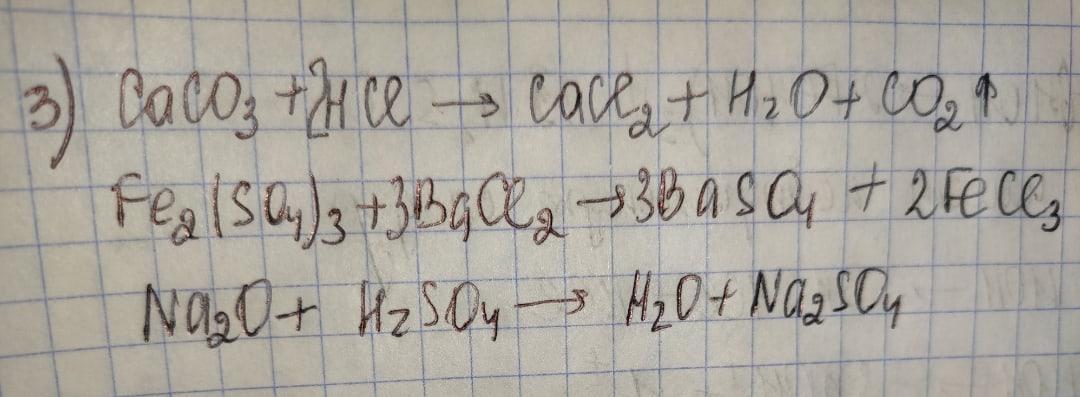 3) CaCO₃ + 2HCl → CaCl₂ + H₂O + CO₂↑
Fe₂(SO₄)₃ + 3BaCl₂ → 3BaSO₄ + 2FeCl₃
Na₂O + H₂SO₄ → H₂O + Na₂SO₄